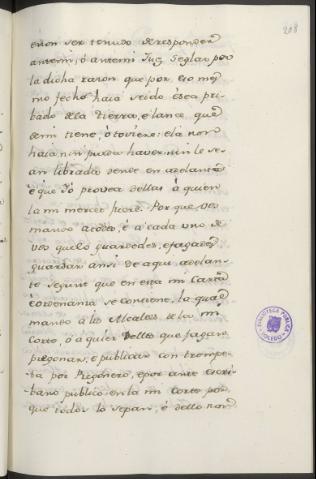 208
é non ser tenudo de responder
ante mi, ó ante mi Juez Seglar por
la dicha razon que por ese mes
mo fecho haia seido é sea pri
bado de la tierra, é lance que
de mi tiene, ó toviere: é la non
haia, nin pueda haver, nin le se
an librados dende en adelante
é que Yo provea dellas á quien
la mi merce fuere. Por que vos
mando á todos, é á cada uno de
vos que lo guardedes, é fagades
guardar ansi de aqui adelan
te segunt que en esta mi Carta
é ordenanza se contiene, la qual
mando á los Alcaldes de la mi
Corte, ó á qualquier dellos que fagan
pregonar, é publicar con trompe
ta por Pregonero, é por ante escri
bano publico en la mi corte por
que todos lo sepan, é dello non
BIBLIOTECA PUBLICA
TOLEDO